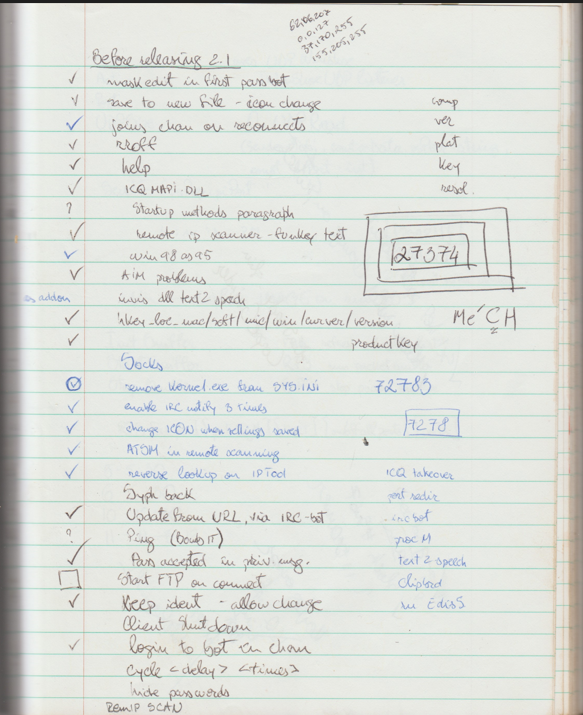 62,06,207
0,0,127
37,170,255
155,205,255
Before releasing 2.1
maskedit in first pass bot
save to new file - icon change
joins chan on reconnects
rroff
help
ICQ MAPI-DLL
? Startup methods paragraph
remote ip scanner - funkey text
win 98 as 95
AIM problems
as addon invis dll text 2 speech
hkey_loc_mac/soft/mic/win/curver/version
productkey
comp
ver
plat
key
resol.
27374
Me'CH
Socks
remove kernel.exe from SYS.ini
enable IRC notify 3 times
change ICON when settings saved
ATSM in remote scanning
reverse lookup on IPTool
Syph back
Update from URL, via IRC-bot
? Ping (BombIT)
Pass accepted in priv. msg.
Start FTP on connect
Keep ident - allow change
Client Shutdown
login to bot in chan
cycle <delay> <times>
hide passwords
RemIP SCAN
72783
7278
ICQ takeover
port redir
- irc bot
proc M
text 2 speech
clipbord
sur EdisS